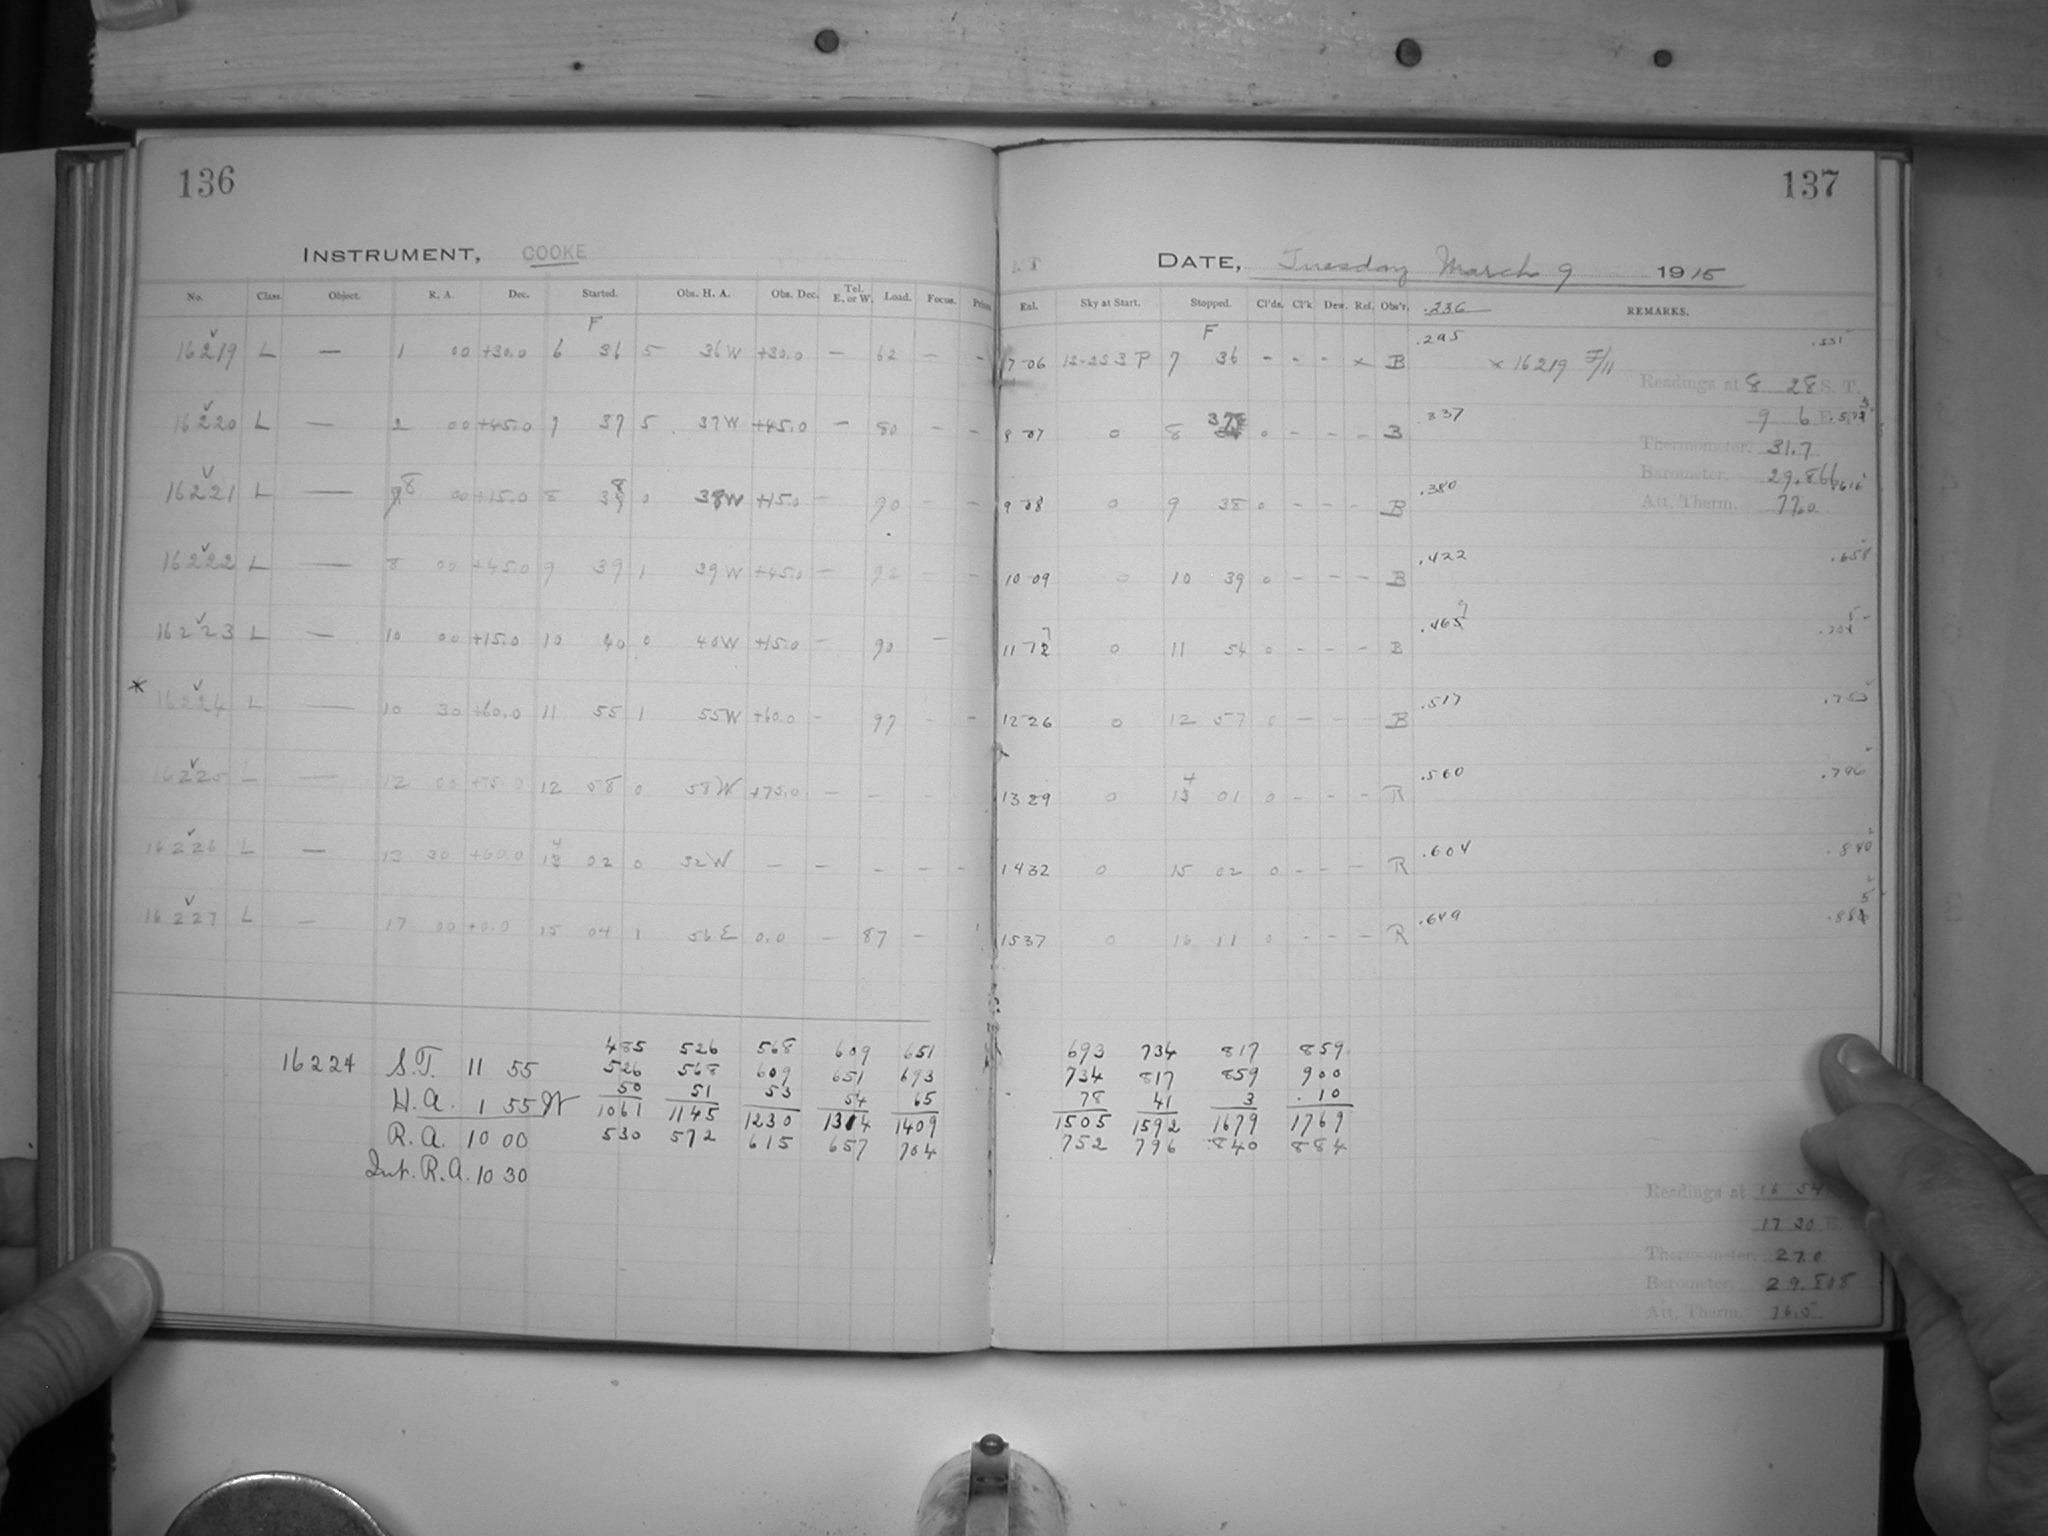 136
INSTRUMENT, COOKE
No. Class. Object. R. A. Dec. Started. Obs. H. A. Obs. Dec. Tel. E. or W. Load. Focus.
F
16219 L — 1 00 +30.0 6 36 5 36W +30.0 — 62 — —
16220 L — 2 00 +45.0 7 37 5 37W +45.0 — 80 — —
16221 L — 8 00 +15.0 8 38 0 38W +15.0 — 90 — —
16222 L — 8 00 +45.0 9 39 1 39W +45.0 — 92 — —
16223 L — 10 00 +15.0 10 40 0 40W +15.0 — 90 —
* 16224 L — 10 30 +60.0 11 55 1 55W +60.0 — 97 — —
16225 L — 12 00 +75.0 12 58 0 58W +75.0 — — —
16226 L — 13 30 +60.0 14 02 0 32W — — — — —
16227 L — 17 00 +0.0 15 04 1 56E 0.0 — 87 —
16224 S.T. 11 55
H.A. 1 55 W
R.A. 10 00
Int. R.A. 10 30
485 526 568 609 651
526 568 609 651 693
50 51 53 54 65
1061 1145 1230 1314 1409
530 572 615 657 704
137
DATE, Tuesday March 9 1915
Enl. Sky at Start. Stopped. Cl'ds. Cl'k Dew. Ref. Obs'r. .236 REMARKS.
F
7 06 12-25 3 P 7 36 - - - x B .295 x 16219 F/11 .531
Readings at 8 28 S. T.
8 07 0 8 37 0 - - - B .337 9 6
Thermometer. 31.7
Barometer. 29.866
9 08 0 9 38 0 - - - B .380
Att. Therm. 77.0
10 09 0 10 39 0 - - - B .422 .658
11 0 11 54 0 - - - B
12 26 0 12 57 0 - - - B .517 .753
13 29 0 14 01 0 - - - R .560 .796
14 32 0 15 02 0 - - - R .604 .840
15 37 0 16 11 0 - - - R .649
693 734 817 859
734 817 859 900
78 41 3 .10
1505 1592 1679 1769
752 796 840 884
Readings at 16 54
17 30
Thermometer. 27.0
Barometer. 29.808
Att. Therm. 76.5